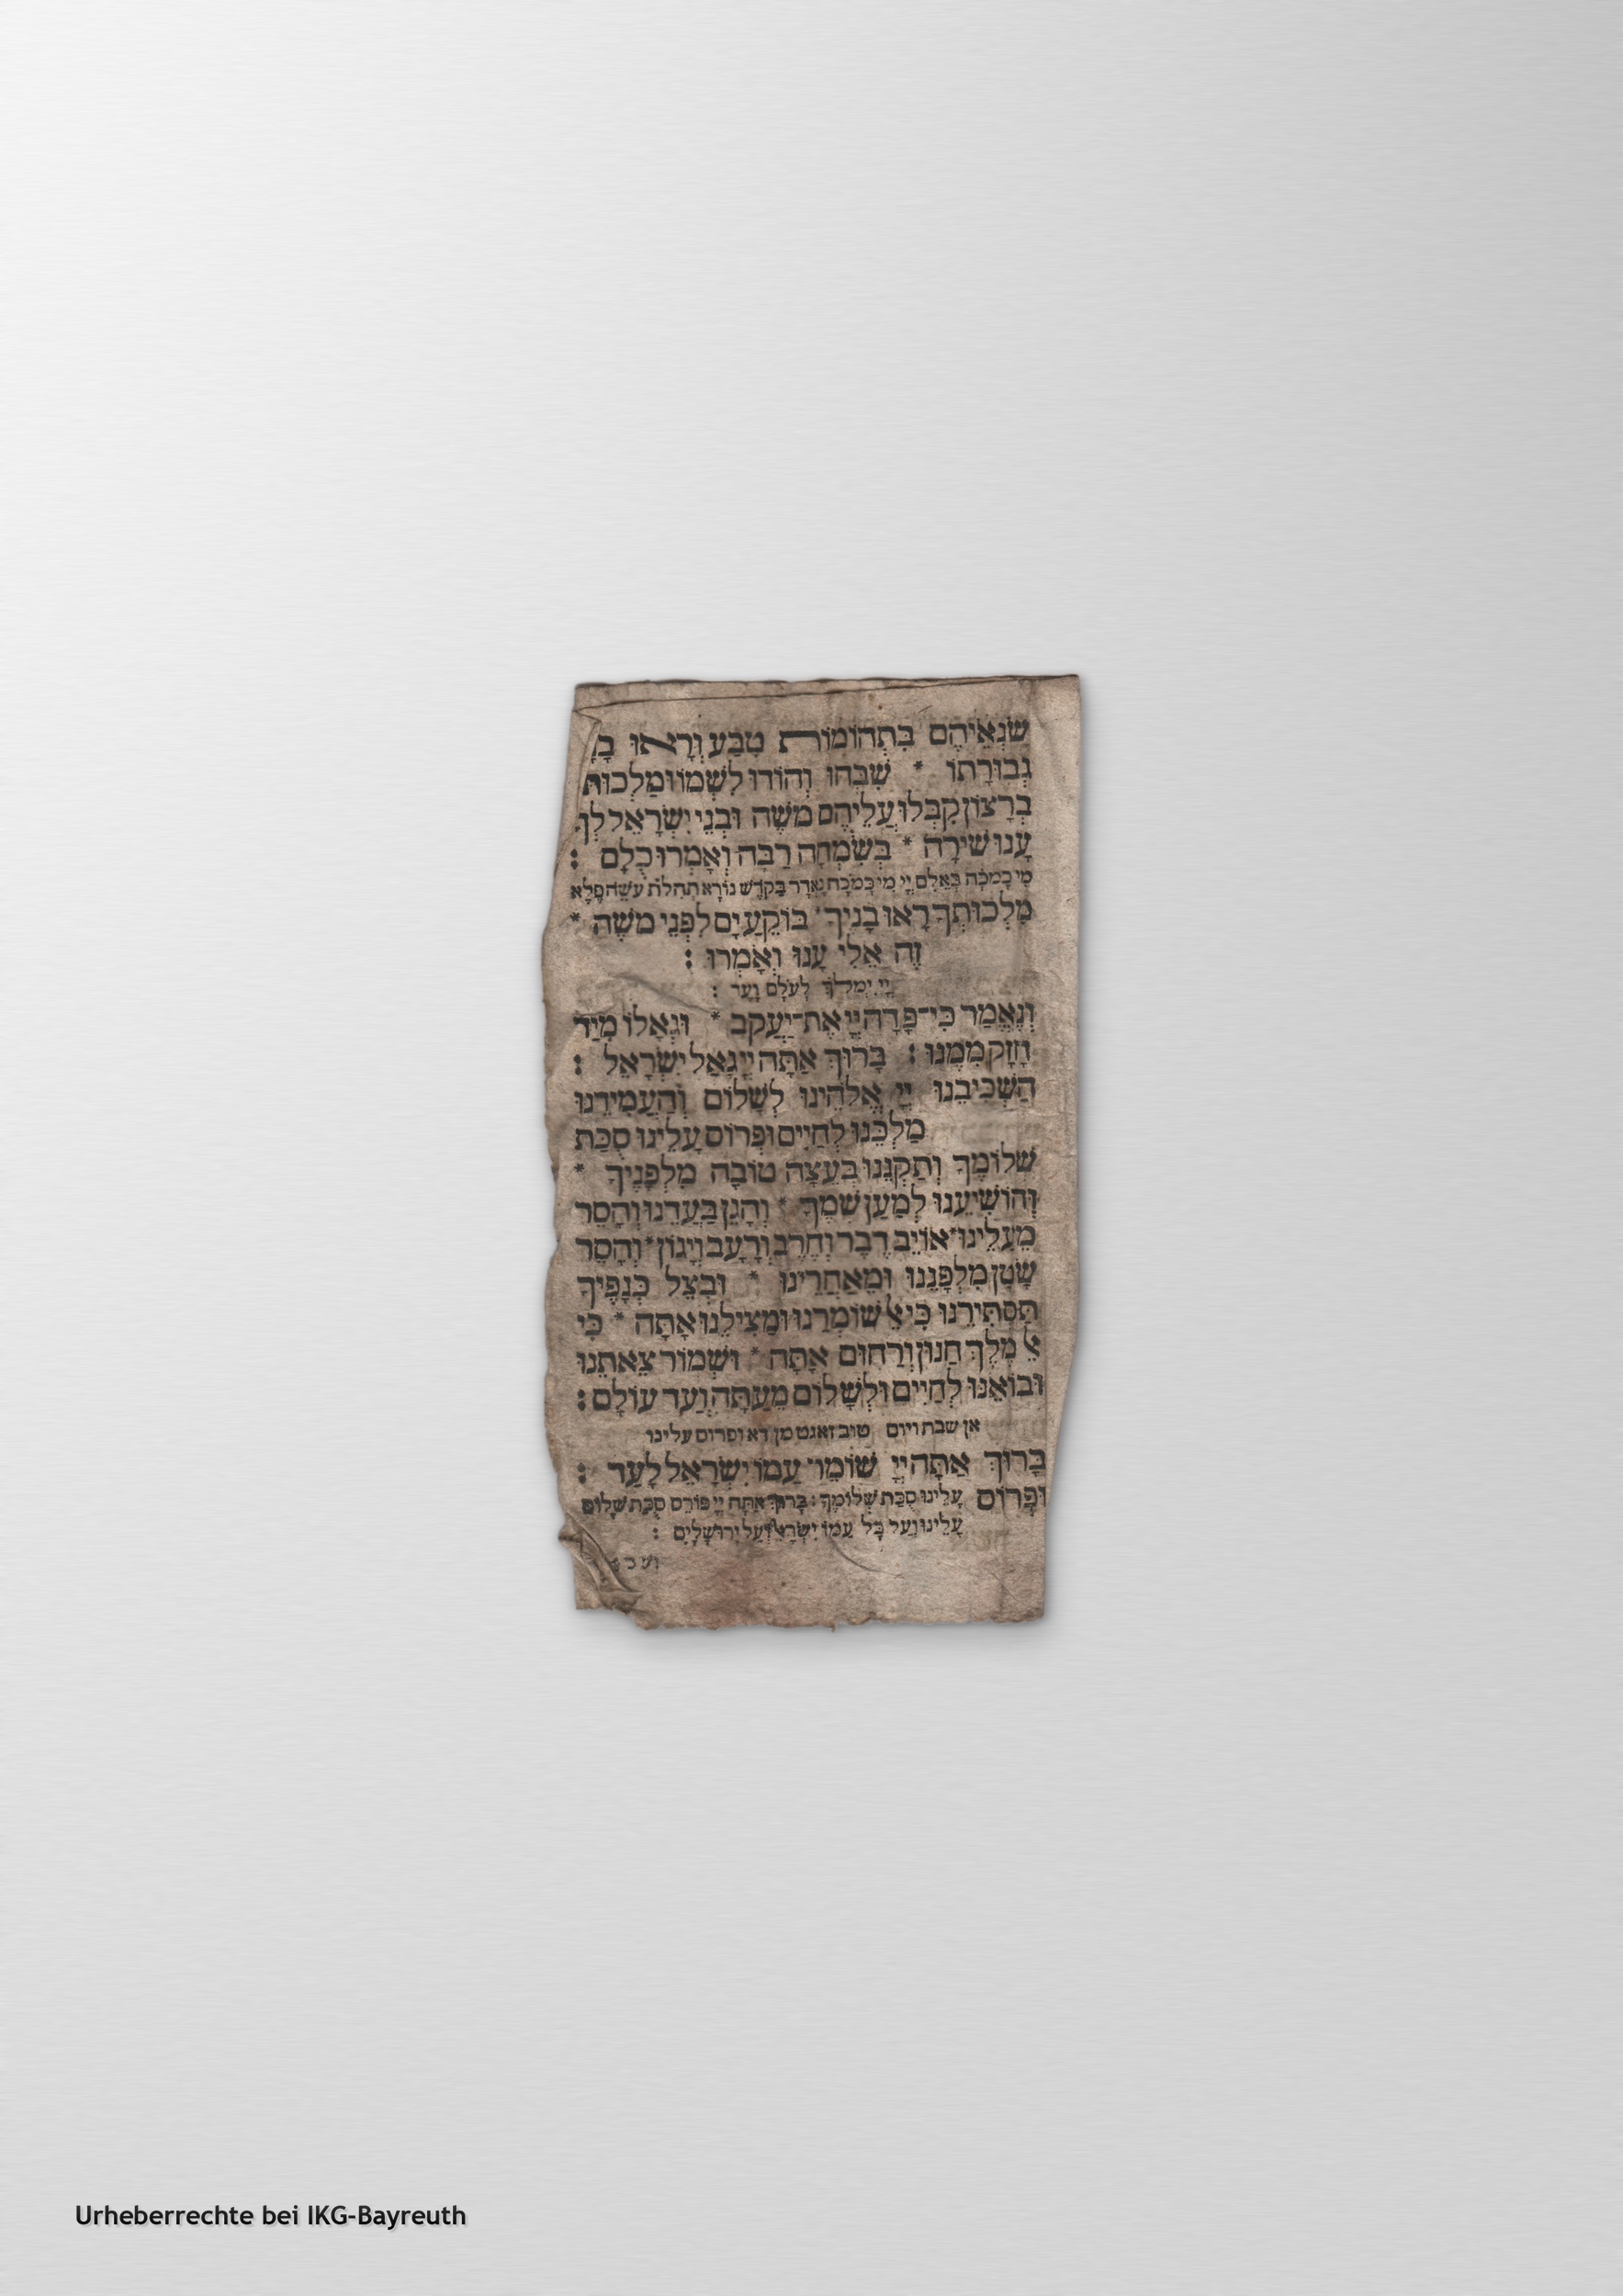 שׂנְאֵיהֶם בִּתְהוֹמוֹת טִבַּע וְרָאוּ בָ
גְבוּרָתוֹ * שִׁבְּחוּ וְהוֹדוּ לִשְׁמוֹ וּמַלְכוּת
בְרָצוֹן קִבְּלוּ עֲלֵיהֶם משֶׁה וּבְנֵי יִשְׂרָאֵל לְךָ
עָנוּ שִׁירָה * בְּשִׂמְחָה רַבָּה וְאָמְרוּ כֻלָּם :
מִי כָמֹכָה בָּאֵלִם יְיָ מִי כָּמֹכָה נֶאְדָּר בַּקֹּדֶשׁ נוֹרָא תְהִלֹּת עֹשֵׂה פֶלֶא
מַלְכוּתְךָ רָאוּ בָנֶיךָ * בּוֹקֵעַ יָם לִפְנֵי משֶׁה *
זֶה אֵלִי עָנוּ וְאָמְרוּ :
יְיָ יִמְלֹךְ לְעֹלָם וָעֶד :
וְנֶאֱמַר כִּי־פָדָה יְיָ אֶת־יַעֲקֹב * וּגְאָלוֹ מִיַּד
חָזָק מִמֶּנּוּ : בָּרוּךְ אַתָּה יְיָ גָּאַל יִשְׂרָאֵל :
הַשְׁכִּיבֵנוּ יְיָ אֱלֹהֵינוּ לְשָׁלוֹם וְהַעֲמִידֵנוּ
מַלְכֵּנוּ לְחַיִּים וּפְרוֹס עָלֵינוּ סֻכַּת
שְׁלוֹמֶךָ וְתַקְּנֵנוּ בְּעֵצָה טוֹבָה מִלְּפָנֶיךָ *
וְהוֹשִׁיעֵנוּ לְמַעַן שְׁמֶךָ * וְהָגֵן בַּעֲדֵנוּ וְהָסֵר
מֵעָלֵינוּ * אוֹיֵב דֶּבֶר וְחֶרֶב וְרָעָב וְיָגוֹן * וְהָסֵר
שָׂטָן מִלְּפָנֵינוּ וּמֵאַחֲרֵינוּ * וּבְצֵל כְּנָפֶיךָ
תַּסְתִּירֵנוּ כִּי אֵל שׁוֹמְרֵנוּ וּמַצִּילֵנוּ אָתָּה * כִּי
אֵל מֶלֶךְ חַנּוּן וְרַחוּם אָתָּה * וּשְׁמוֹר צֵאתֵנוּ
וּבוֹאֵנוּ לְחַיִּים וּלְשָׁלוֹם מֵעַתָּה וְעַד עוֹלָם :
אן שבת ויום טוב זאגט מן דא ופרוס עלינו
בָּרוּךְ אַתָּה יְיָ שׁוֹמֵר עַמּוֹ יִשְׂרָאֵל לָעַד :
וּפְרוֹס עָלֵינוּ סֻכַּת שְׁלוֹמֶךָ : בָּרוּךְ אַתָּה יְיָ פּוֹרֵס סֻכַּת שָׁלוֹם
עָלֵינוּ וְעַל כָּל עַמּוֹ יִשְׂרָאֵל וְעַל יְרוּשָׁלָיִם :
Urheberrechte bei IKG-Bayreuth